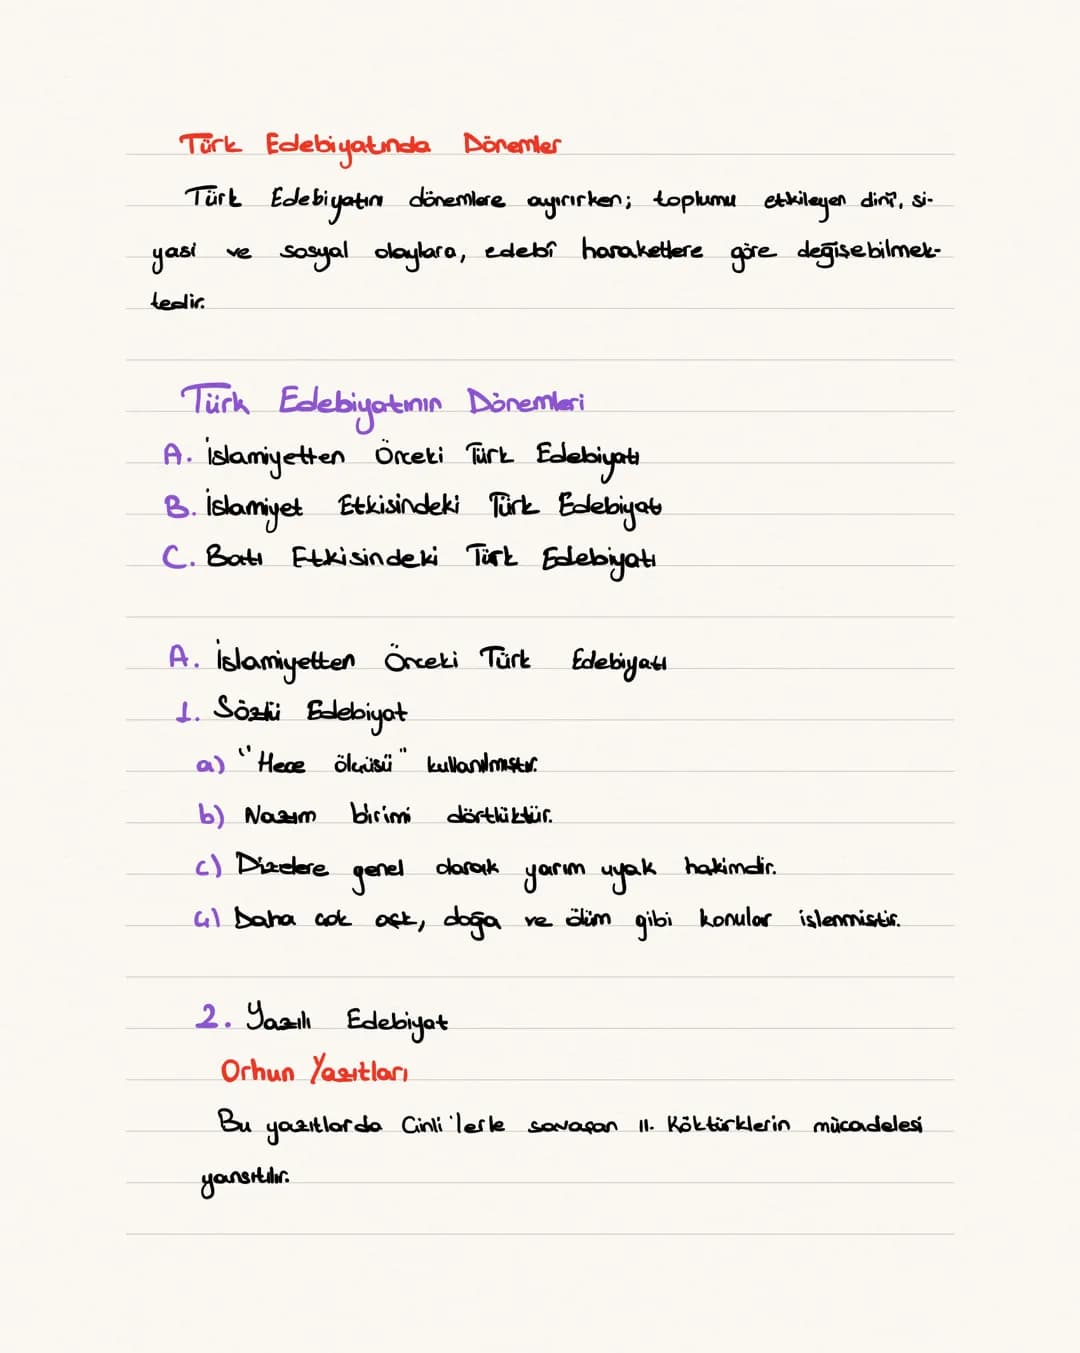 Türk Edebiyatında Dönemler
Türk Edebiyatını dönemlere ayırırken; toplumu etkileyen dinî, si-
yasi ve sosyal olaylara, edebî haraketlere göre değişebilmek-
tedir.
Türk Edebiyatının Dönemleri
A. İslamiyetten Önceki Türk Edebiyatı
B. İslamiyet Etkisindeki Türk Edebiyatı
C. Batı Etkisindeki Türk Edebiyatı
A. İslamiyetten Önceki Türk Edebiyatı
1. Sözlü Edebiyat
a) "Hece ölçüsü" kullanılmıştır.
b) Nazım birimi dörtlüktür.
c) Dizelere genel olarak yarım uyak hakimdir.
ç) Daha çok aşk, doğa ve ölüm gibi konular işlenmiştir.
2. Yazılı Edebiyat
Orhun Yazıtları
Bu yazıtlarda Çinli'lerle savaşan II. Köktürklerin mücadelesi
yansıtılır.